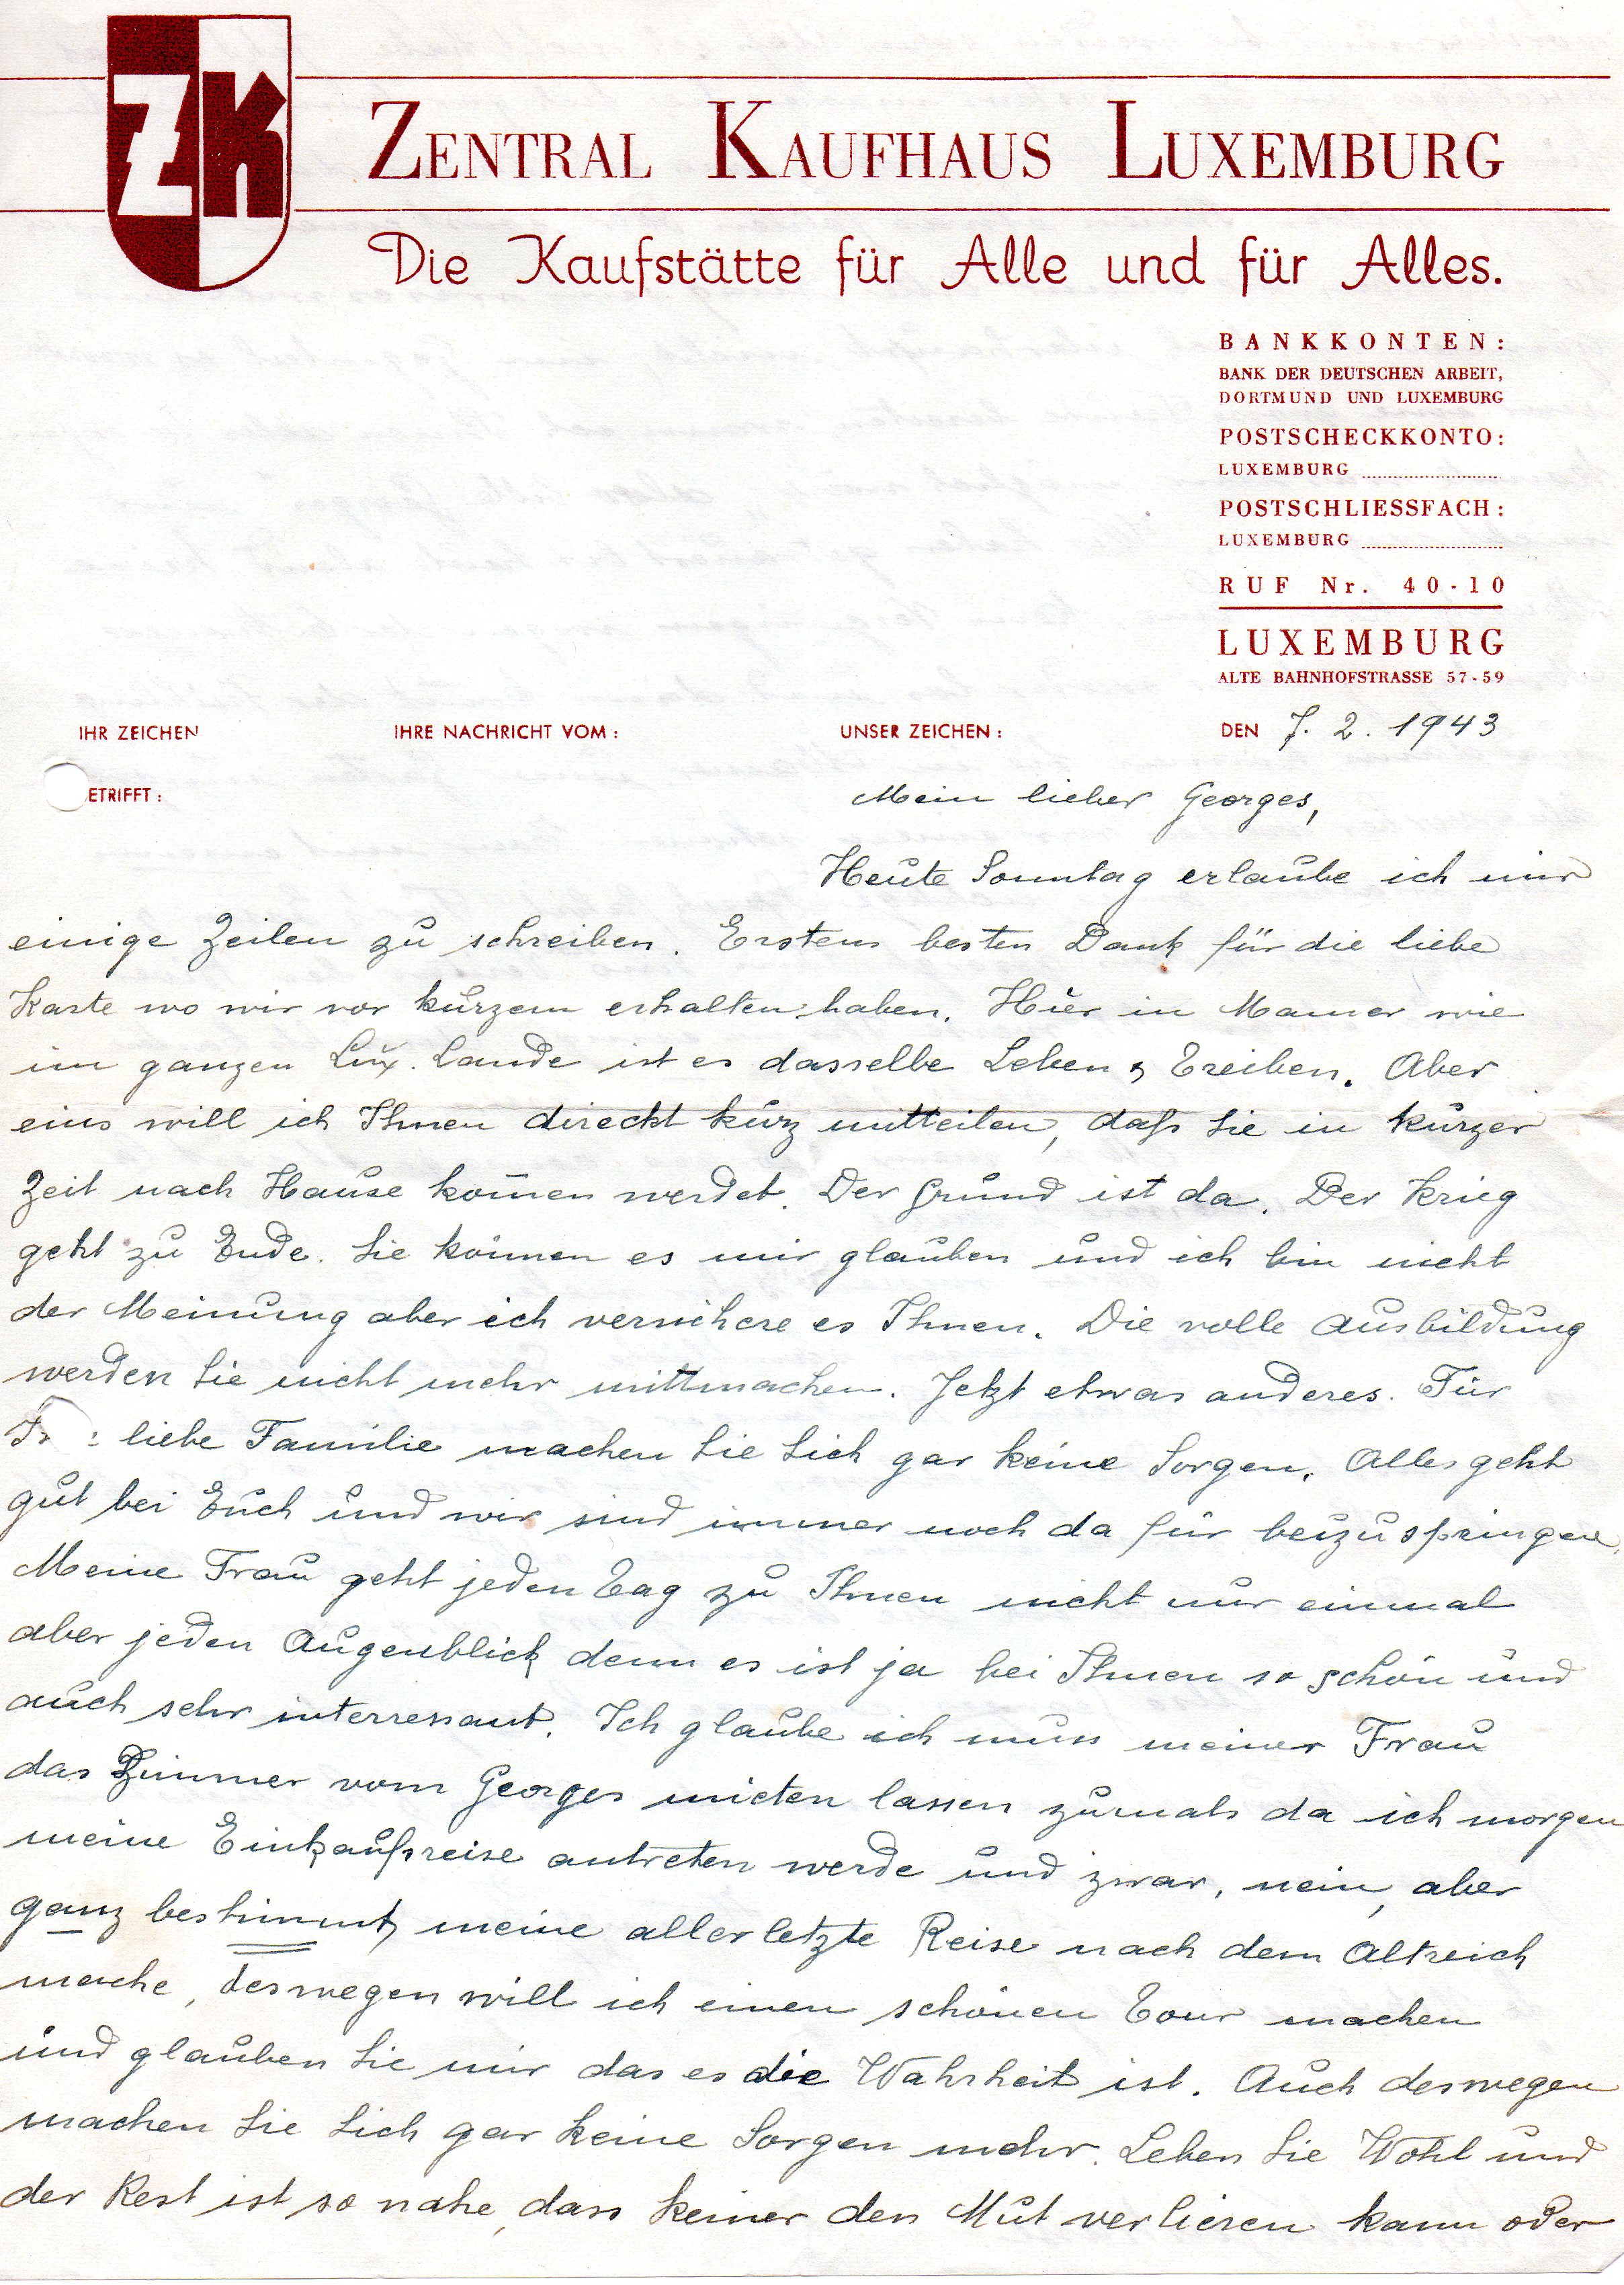 ZK
ZENTRAL KAUFHAUS LUXEMBURG
Die Kaufstätte für Alle und für Alles.
BANKKONTEN:
BANK DER DEUTSCHEN ARBEIT,
DORTMUND UND LUXEMBURG
POSTSCHECKKONTO:
LUXEMBURG
POSTSCHLIESSFACH:
LUXEMBURG
RUF Nr. 40-10
LUXEMBURG
ALTE BAHNHOFSTRASSE 57-59
IHR ZEICHEN IHRE NACHRICHT VOM: UNSER ZEICHEN: DEN 7. 2. 1943
ETRIFFT:
Mein lieber Georges,
Heute Sonntag erlaube ich mir
einige Zeilen zu schreiben. Erstens besten Dank für die liebe
Karte wo wir vor kurzem erhalten haben. Hier in Mamer wie
im ganzen Lux. Lande ist es dasselbe Leben & Treiben. Aber
eins will ich Ihnen direckt kurz mitteilen, dafs Sie in kurzer
Zeit nach Hause kom̄en werdet. Der Grund ist da. Der Krieg
geht zu Ende. Sie können es mir glauben und ich bin nicht
der Meinung aber ich versichere es Ihnen. Die volle Ausbildung
werden Sie nicht mehr mittmachen. Jetzt etwas anderes. Für
liebe Familie machen Sie Sich gar keine Sorgen. Alles geht
gut bei Euch und wir sind immer noch da für beizuspringen.
Meine Frau geht jeden Tag zu Ihnen nicht nur einmal
aber jeden Augenblick denn es ist ja bei Ihnen so schön und
auch sehr interressant. Ich glaube ich muss meiner Frau
das Zimmer vom Georges mieten lassen zumals da ich morgen
meine Einkaufsreise antreten werde und zwar, nein, aber
ganz bestimmt, meine allerletzte Reise nach dem Altreich
mache, deswegen will ich einen schönen Tour machen
und glauben Sie mir das es die Wahrheit ist. Auch deswegen
machen Sie Sich gar keine Sorgen mehr. Leben Sie Wohl und
der Rest ist so nahe, dass keiner den Mut verlieren kann oder